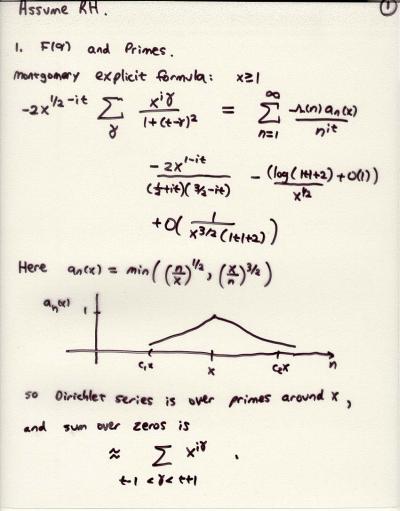 Assume RH. 1
1. F(α) and Primes.
Montgomery explicit formula: x≥1
-2x^{1/2-it} ∑_γ x^{iγ}/(1+(t-γ)^2) = ∑_{n=1}^{∞} -Λ(n) a_n(x)/n^{it}
-2x^{1-it}/((1/2+it)(3/2-it)) - (log(|t|+2)+O(1))/x^{1/2}
+O(1/(x^{3/2}(|t|+2)))
Here a_n(x) = min((n/x)^{1/2}, (x/n)^{3/2})
a_n(x)
1
c_1x x c_2x n
so Dirichlet series is over primes around x,
and sum over zeros is
≈ ∑ x^{iγ} .
t-1 < γ < t+1